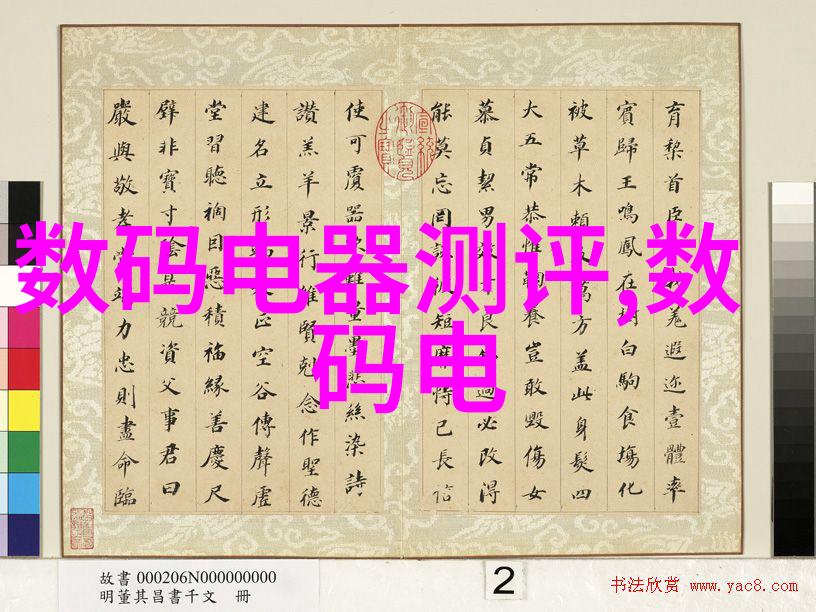 育棃首臣羌遐迩壹體率
賓歸王鳴鳳在樹白駒食場化
被草木賴萬方蓋此身髮四
大五常恭惟鞠養豈敢毀傷女
慕貞絜男效良過必改得
能莫忘罔談短靡恃己長信
使可覆器欲難量墨悲絲染詩
讚羔羊景行維賢剋念作聖德
建名立形正空谷傳聲虛
堂習聽禍因惡積福緣善慶尺
璧非寶寸陰是競資父事君曰
嚴與敬孝當竭力忠則盡命臨
宣統御覽之寶
数码电器测评,数
码电
故書 000206N000000000
明董其昌書千文 冊
2
书法欣赏 www.yac8.com